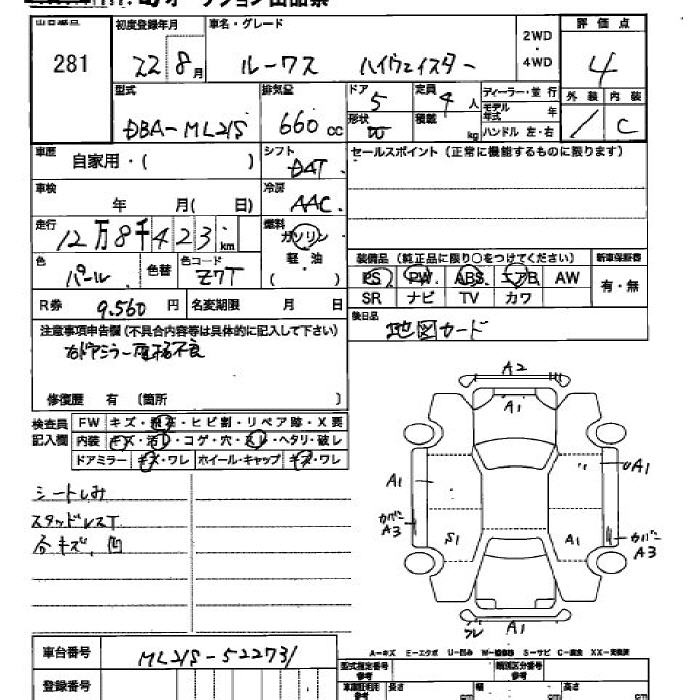 出品番号 281
初度登録年月 22 8月
車名・グレード ルークス ハイウェイスター
2WD・4WD
評価点 4
外装 / 内装 C
型式 DBA-ML21S
排気量 660 cc
ドア 5 形状
定員 4 人 積載 kg
ディーラー・並行
モデル年式 年
ハンドル 左・右
車歴 自家用・( )
シフト DAT
セールスポイント (正常に機能するものに限ります)
車検 年 月( 日)
冷房 AAC
走行 12万8千423 km
燃料 ガソリン 軽油 ( )
色 パール 色替 色コード Z7T
装備品 (純正品に限り○をつけてください) 新車保証書
PS PW ABS エアB AW 有・無
SR ナビ TV カワ
R券 9.560 円 名変期限 月 日
後日品 地図カード
注意事項申告欄 (不具合内容等は具体的に記入して下さい)
右ドアミラー 不良
修復歴 有 〔箇所 〕
検査員記入欄
FW キズ・ ・ヒビ割・リペア跡・X要
内装 キズ・汚レ・コゲ・穴・スレ・ヘタリ・破レ
ドアミラー キズ・ワレ ホイール・キャップ キズ・ワレ
シートしみ
スタッドレスT
各キズ、凹
A2
A1
A1
UA1
カバー A3
S1
A1
カバー A3
A1
A-キズ E-エクボ U-凹み W-補修跡 S-サビ C-腐蝕 XX-交換済
車台番号 ML21S-522731
登録番号
型式指定番号 参考
類別区分番号 参考
長さ cm 幅 cm 高さ cm